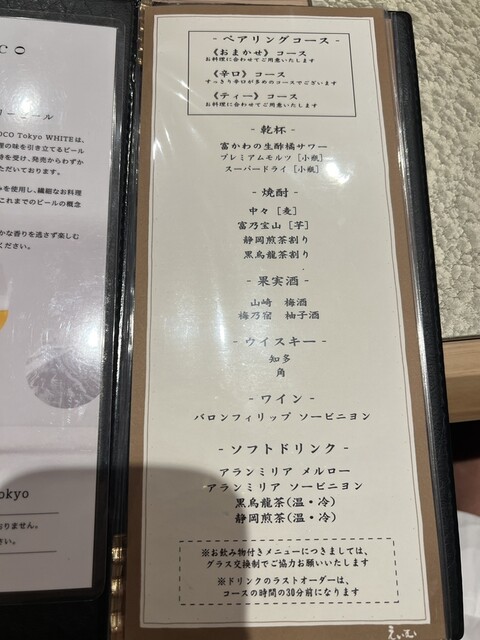 co
ラービール
OCO Tokyo WHITEは、
理の味を引き立てるビール
持を受け、発売からわずか
ただいております。
みを使用し、繊細なお料理
これまでのビールの概念
かな香りを逃さず楽しむ
ください。
okyo
おりません。
さい。
- ペアリングコース -
《おまかせ》コース
お料理に合わせてご用意いたします
《辛口》コース
すっきり辛口が多めのコースでございます
《ティー》コース
お料理に合わせてご用意いたします
- 乾杯 -
富かわの生酢橘サワー
プレミアムモルツ [小瓶]
スーパードライ [小瓶]
- 焼酎 -
中々 [麦]
富乃宝山 [芋]
静岡煎茶割り
黒烏龍茶割り
- 果実酒 -
山崎 梅酒
梅乃宿 柚子酒
- ウイスキー -
知多
角
- ワイン -
バロンフィリップ ソービニヨン
- ソフトドリンク -
アランミリア メルロー
アランミリア ソービニヨン
黒烏龍茶(温・冷)
静岡煎茶(温・冷)
※お飲み物付きメニューにつきましては、
グラス交換制でご協力お願いいたします
※ドリンクのラストオーダーは、
コースの時間の30分前になります